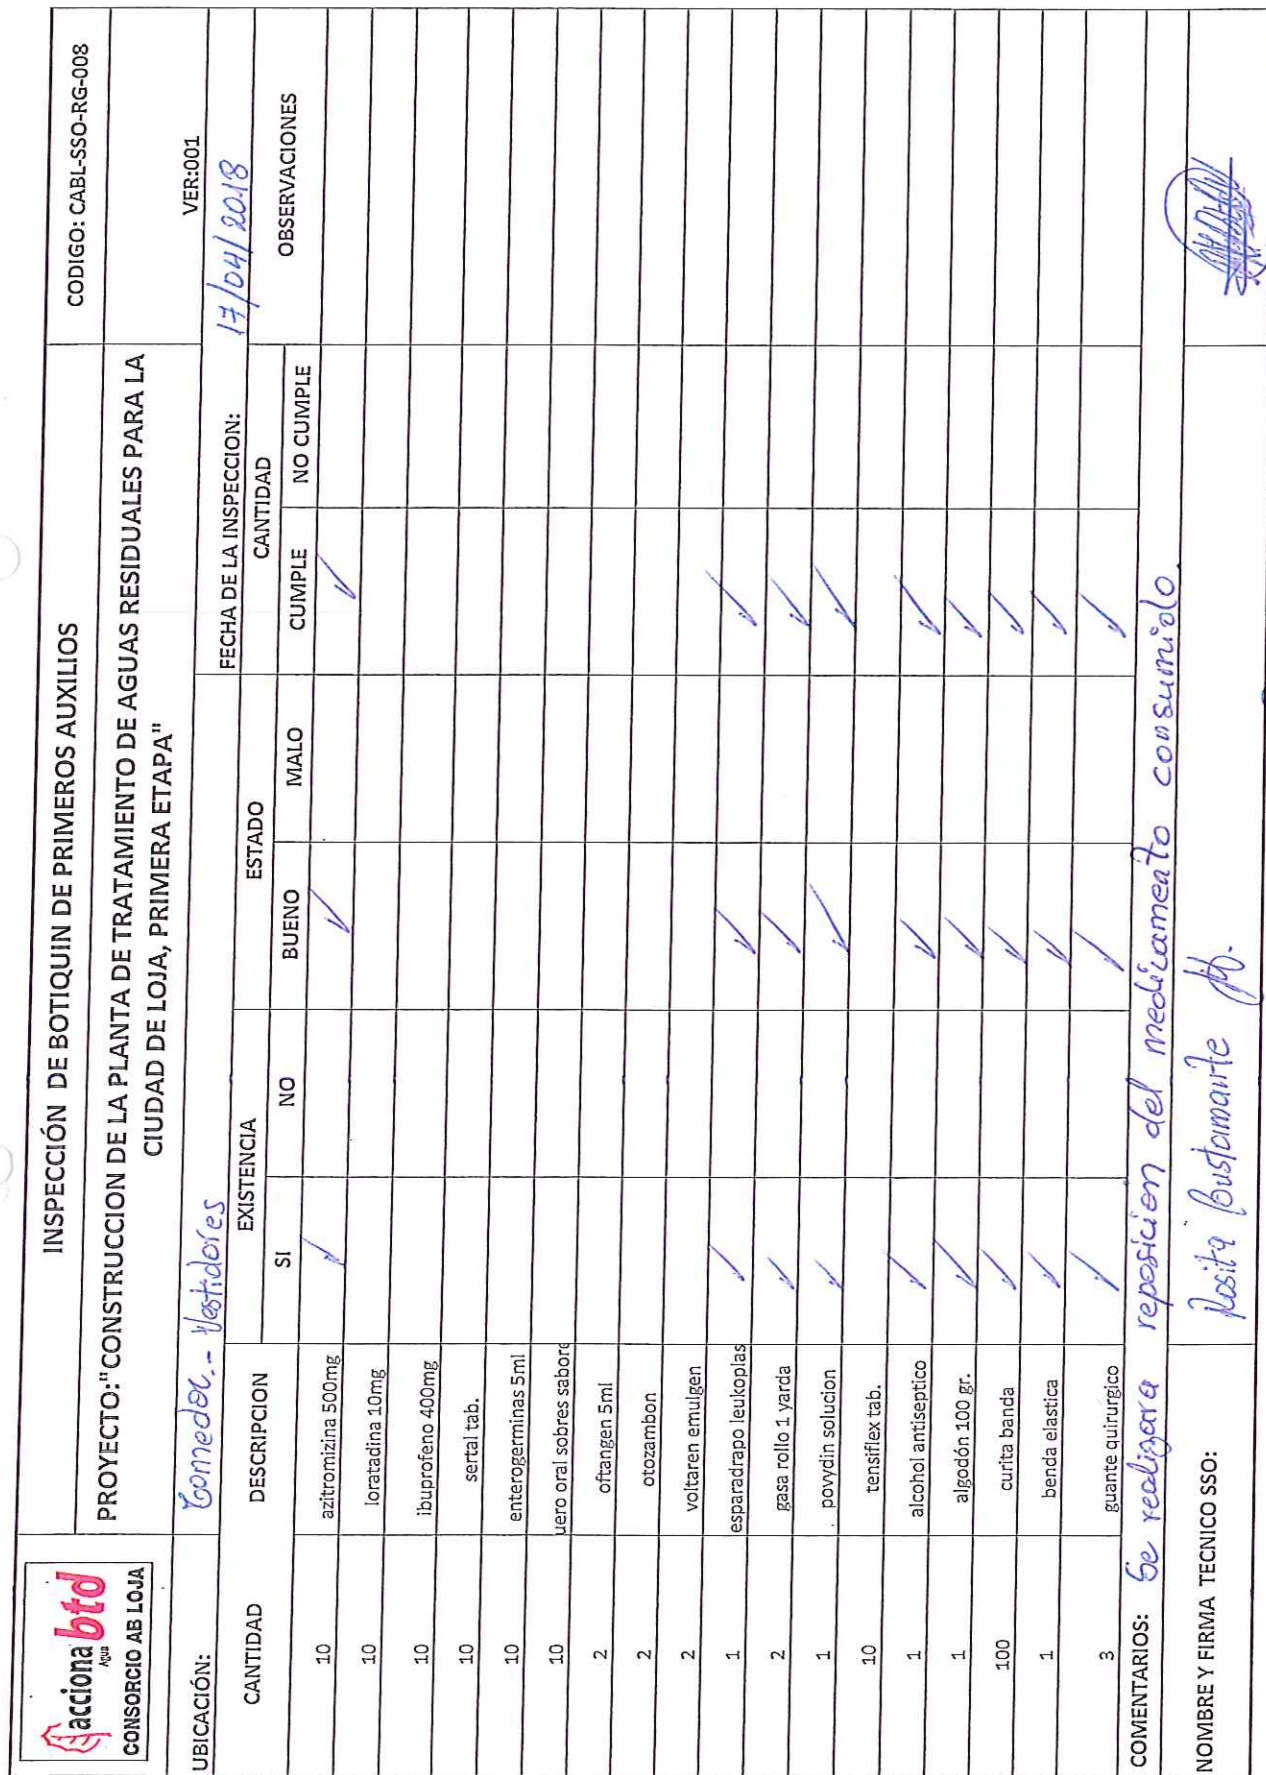 acciona btd
Agua
CONSORCIO AB LOJA
INSPECCIÓN DE BOTIQUIN DE PRIMEROS AUXILIOS
CODIGO: CABL-SSO-RG-008
PROYECTO:"CONSTRUCCION DE LA PLANTA DE TRATAMIENTO DE AGUAS RESIDUALES PARA LA
CIUDAD DE LOJA, PRIMERA ETAPA"
VER:001
UBICACIÓN: Comedor.- Vestidores
FECHA DE LA INSPECCION: 17/04/2018
CANTIDAD DESCRIPCION EXISTENCIA ESTADO CANTIDAD OBSERVACIONES
SI NO BUENO MALO CUMPLE NO CUMPLE
10 azitromizina 500mg ✓ ✓ ✓
10 loratadina 10mg
10 ibuprofeno 400mg
10 sertal tab.
10 enterogerminas 5ml
10 uero oral sobres sabore
2 oftangen 5ml
2 otozambon
2 voltaren emulgen
1 esparadrapo leukoplas ✓ ✓ ✓
2 gasa rollo 1 yarda ✓ ✓ ✓
1 povydin solucion ✓ ✓ ✓
10 tensiflex tab.
1 alcohol antiseptico ✓ ✓ ✓
1 algodón 100 gr. ✓ ✓ ✓
100 curita banda ✓ ✓ ✓
1 benda elastica ✓ ✓ ✓
3 guante quirurgico ✓ ✓ ✓
COMENTARIOS: Se realizara reposicion del medicamento consumido
NOMBRE Y FIRMA TECNICO SSO: Rosita Bustamante